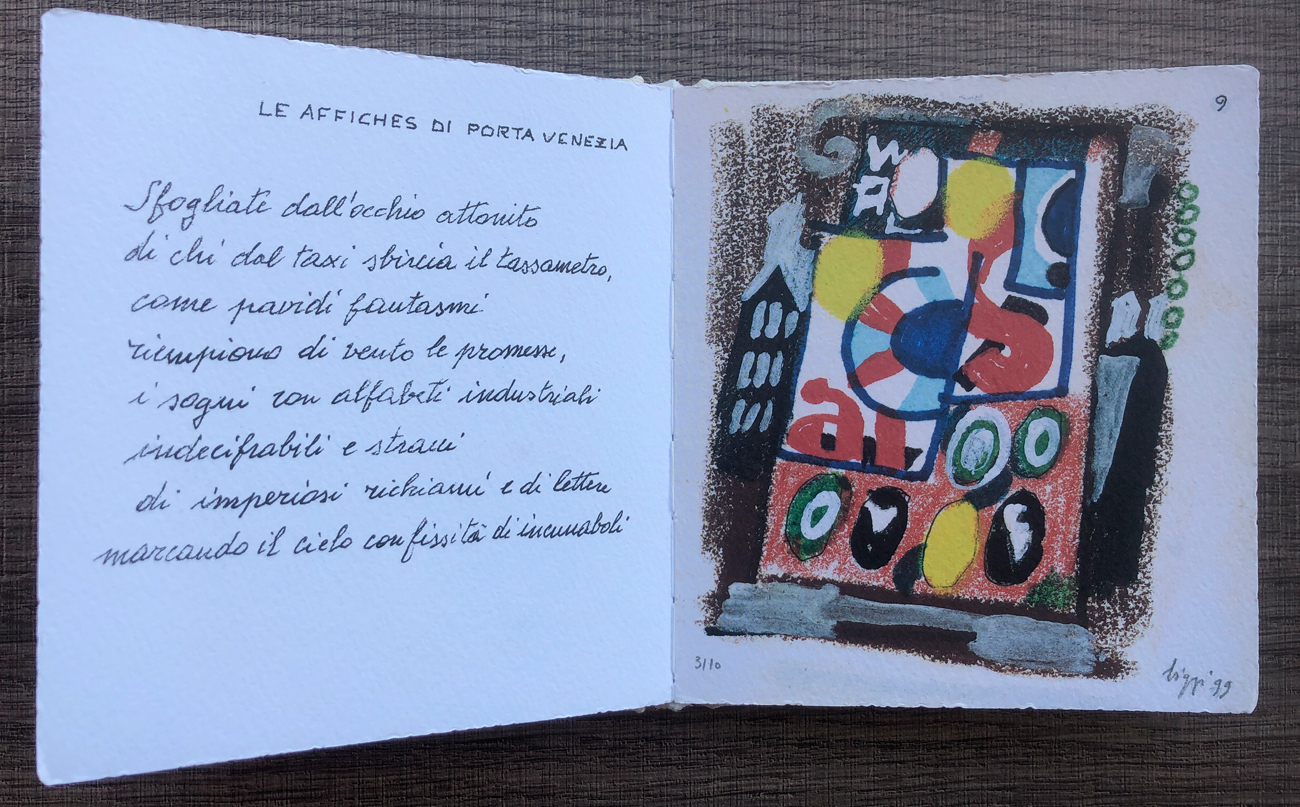 LE AFFICHES DI PORTA VENEZIA
Sfogliate dall'occhio attonito
di chi dal taxi sbircia il tassametro,
come pavidi fantasmi
riempiono di vento le promesse,
i sogni con alfabeti industriali
indecifrabili e strani
di imperiosi richiami e di lettere
marcando il cielo con fissità di incunaboli
9
3/10
99